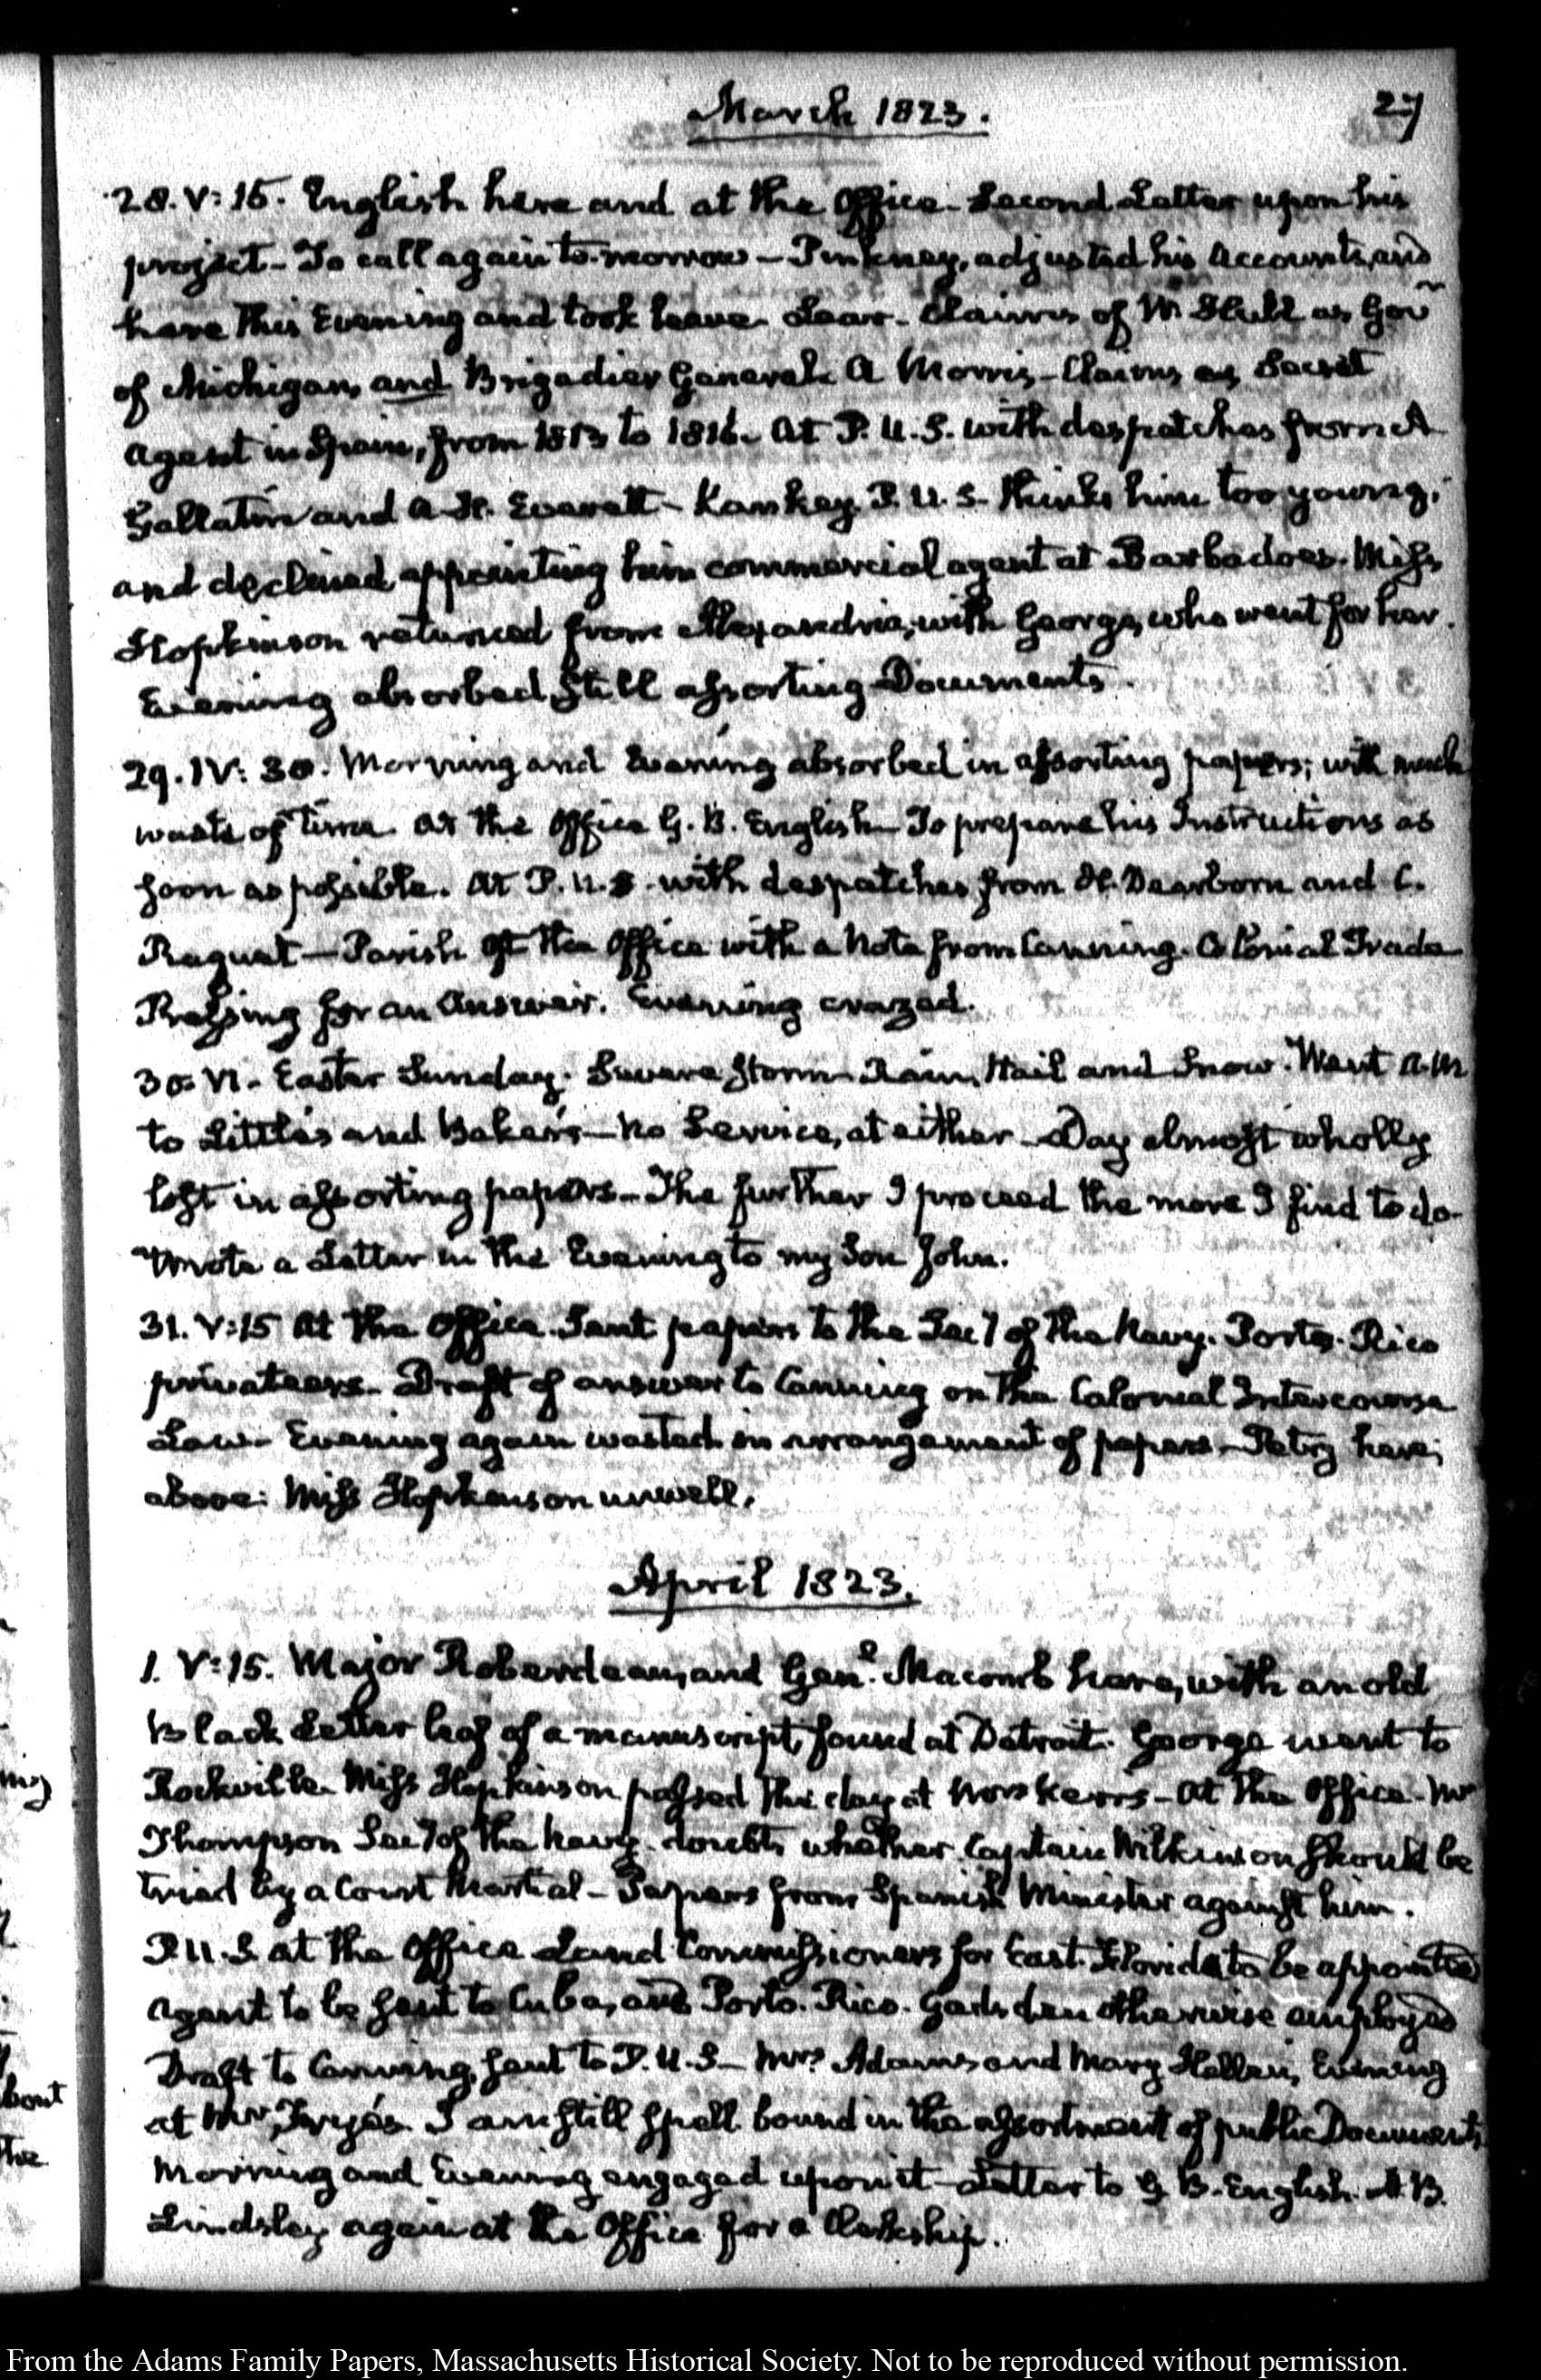 March 1823.
27
28. V: 15. English here and at the Office. Second Letter upon his
project. To call again to-morrow — Pinkney, adjusted his Accounts, and
here this Evening and took leave. Lear. Claims of W Hull as Gov
of Michigan, and Brigadier General. A Morris — Claims as Secret
Agent in Spain, from 1813 to 1816. At P. U. S. with despatches from A
Gallatin and A. H. Everett — Kankey. P. U. S. thinks him too young,
and declined appointing him commercial agent at Barbadoes. Miss
Hopkinson returned from Alexandria, with George, who went for her.
Evening absorbed still assorting Documents.
29. IV: 30. Morning and Evening absorbed in assorting papers; with much
waste of time. At the Office G. B. English — To prepare his Instructions as
soon as possible. At P. U. S. with despatches from H. Dearborn and C.
Raguet — Parish at the Office with a Note from Canning. Colonial Trade
Pressing for an Answer. Evening crazed.
30. VI. Easter Sunday. Severe Storm — Rain, Hail and Snow. Went A.M
to Little's and Baker's — No Service, at either — Day almost wholly
lost in assorting papers — The further I proceed the more I find to do.
Wrote a Letter in the Evening to my Son John.
31. V: 15 At the Office. Sent papers to the Secy of the Navy. Porto-Rico
privateers. Draft of answer to Canning on the Colonial Intercourse
Law — Evening again wasted in arrangement of papers — Petry here;
above. Miss Hopkinson unwell.
April 1823.
1. V: 15. Major Roberdeau, and Genl. Macomb here, with an old
Black Letter leaf of a manuscript, found at Detroit. George went to
Rockville. Miss Hopkinson passed the day at Mrs Kerr's — At the Office — Mr
Thompson Secy of the Navy. doubts whether Captain Wilkinson should be
tried by a Court Martial — Papers from Spanish Minister against him.
P. U. S at the Office Land Commissioners for East-Florida to be appointed
Agent to be sent to Cuba, and Porto-Rico. Gadsden otherwise employed
Draft to Canning, sent to P. U. S — Mrs. Adams and Mary Hellen, Evening
at Mr. Frye's. I am still spell bound in the assortment of public Documents
Morning and Evening engaged upon it — Letter to G B. English. B.
Lindsley again at the Office for a Clerkship.
From the Adams Family Papers, Massachusetts Historical Society. Not to be reproduced without permission.